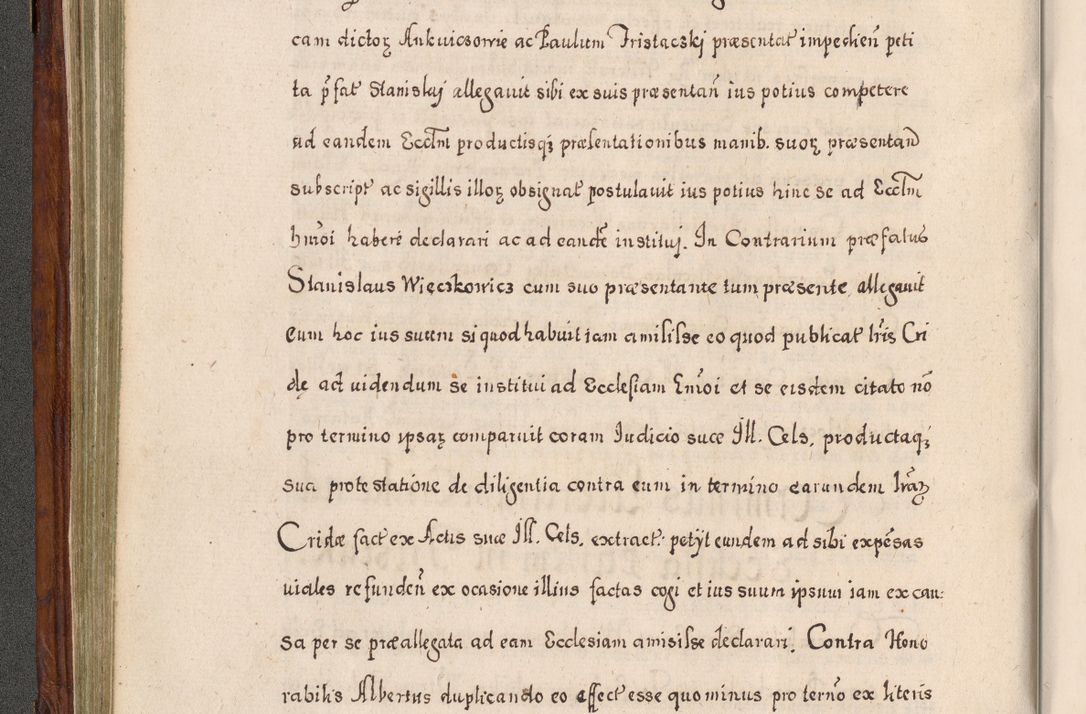 cam dictoꝝ Ankuicsowie ac Paulum Tristacskj præsentat impedien̄ peti
ta p̄fat Stanislaj allegauit sibi ex suis præsentan̄ ius potius competere
ad eandem Eccl̄m productisqꝫ præsentationibus manib. suoꝝ præsentan̄
subscript ac sigillis illoꝝ obsignat postulauit ius potius hinc se ad Eccl̄m
hm̄oi habere declarari ac ad eandē institui. In Contrarium præfatus
Stanislaus Więczkowicz cum suo præsentante tum præsente allegauit
eum hoc ius suum si quod habuit iam amisisse eo quod publicat lr̄is Cri
dę ad uidendum se institui ad Ecclesiam hm̄oi et se eisdem citato nō
pro termino ipsaꝝ comparuit coram Iudicio suæ Ill. Cels, productaqꝫ
sua protestatione de diligentia contra eum in termino earundem lr̄aꝝ
Cridæ fact ex Actis suæ Ill. Cels. extract petijt eundem ad sibi expēsas
uiales refunden̄ ex ocasione illius factas cogi et ius suum ipsum iam ex cau:
sa per se præallegata ad eam Ecclesiam amisisse declarari. Contra Hono
rabilis Albertus duplicando eo affect esse quominus pro tern̄o ex literis